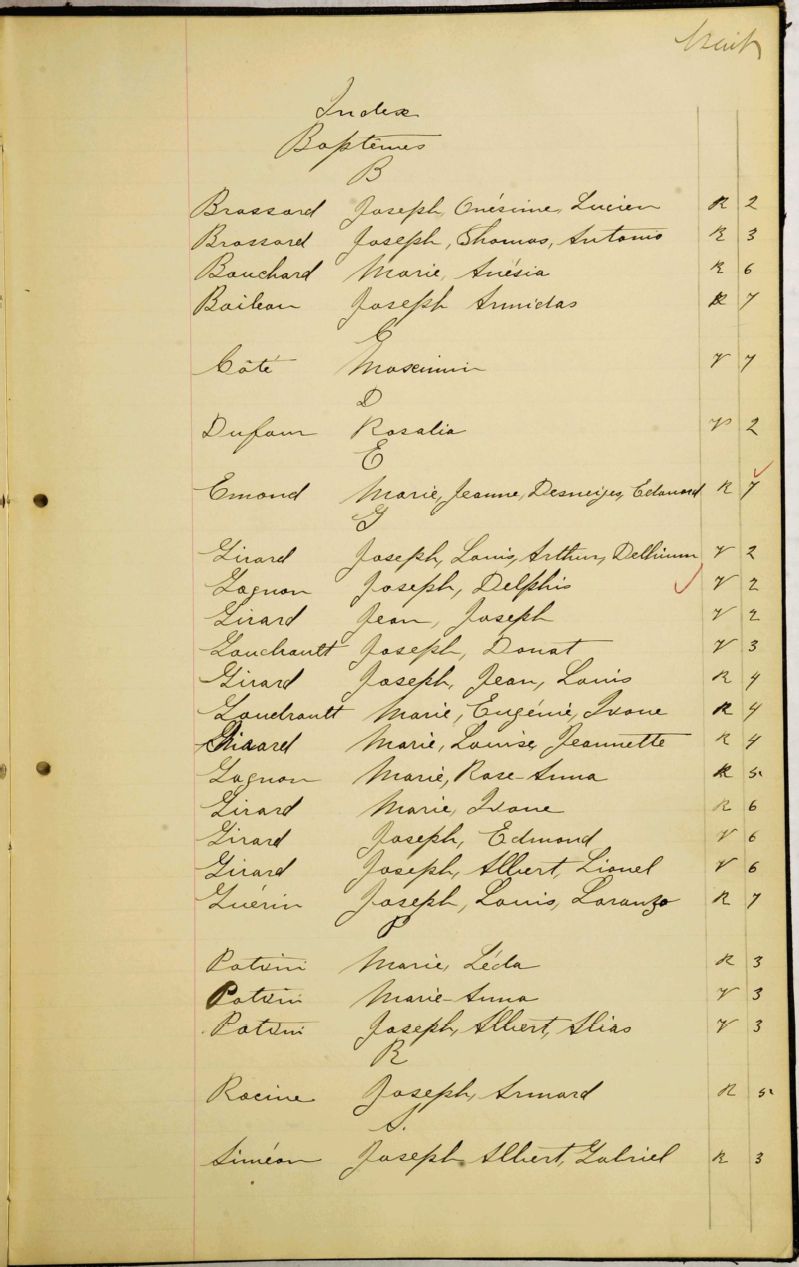 huit
Index
Baptêmes
B
Brassard Joseph, Onésime, Lucien R 2
Brassard Joseph, Thomas, Antonio R 3
Bouchard Marie, Anésia R 6
Boileau Joseph Armidas R 7
C
Côté Maximin V 7
D
Dufour Rosalia V 2
E
Emond Marie, Jeanne, Desneiges, Edouard R 7
G
Girard Joseph, Louis, Arthur, Delhium V 2
Gagnon Joseph, Delphis V 2
Girard Jean, Joseph V 2
Gaudrault Joseph, Donat V 3
Girard Joseph, Jean, Louis R 4
Gaudrault Marie, Eugénie, Ivone R 4
Girard Marie, Louise, Jeannette R 4
Gagnon Marie, Rose-Anna R 5
Girard Marie, Ivone R 6
Girard Joseph, Edmond V 6
Girard Joseph, Albert, Lionel V 6
Guérin Joseph, Louis, Loranzo R 7
P
Potvin Marie, Léda R 3
Potvin Marie-Anna V 3
Potvin Joseph, Albert, Alias V 3
R
Racine Joseph, Armard R 5
S.
Siméon Joseph Albert, Gabriel R 3